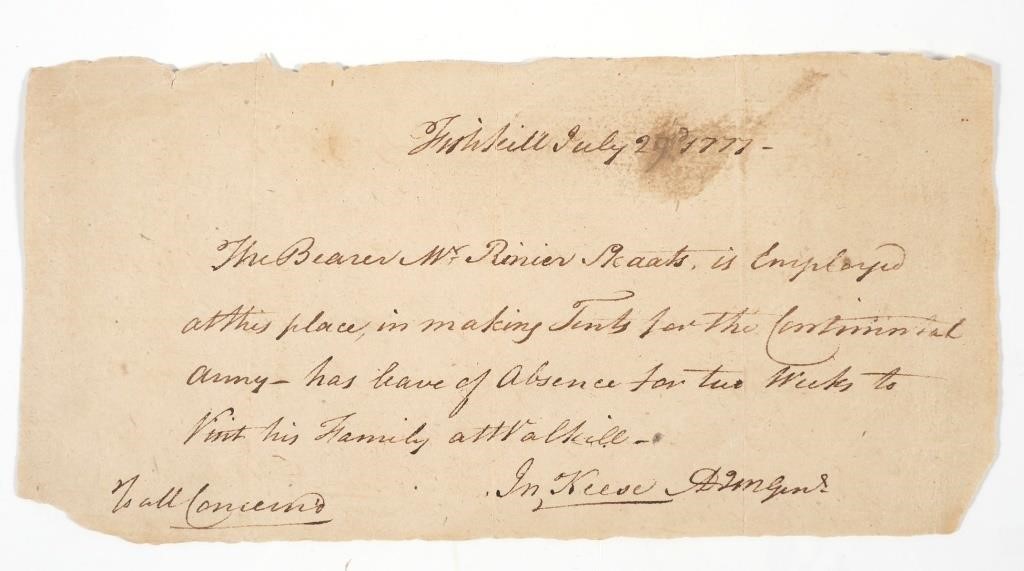 Fishkill July 29th 1777 -
The Bearer Mr. Rinier Skaats, is Employed
at this place, in making Tents for the Continental
Army - has leave of Absence for two Weeks to
Visit his Family at Walkill -
Jn Keese ADQMGenl
To all Concern'd